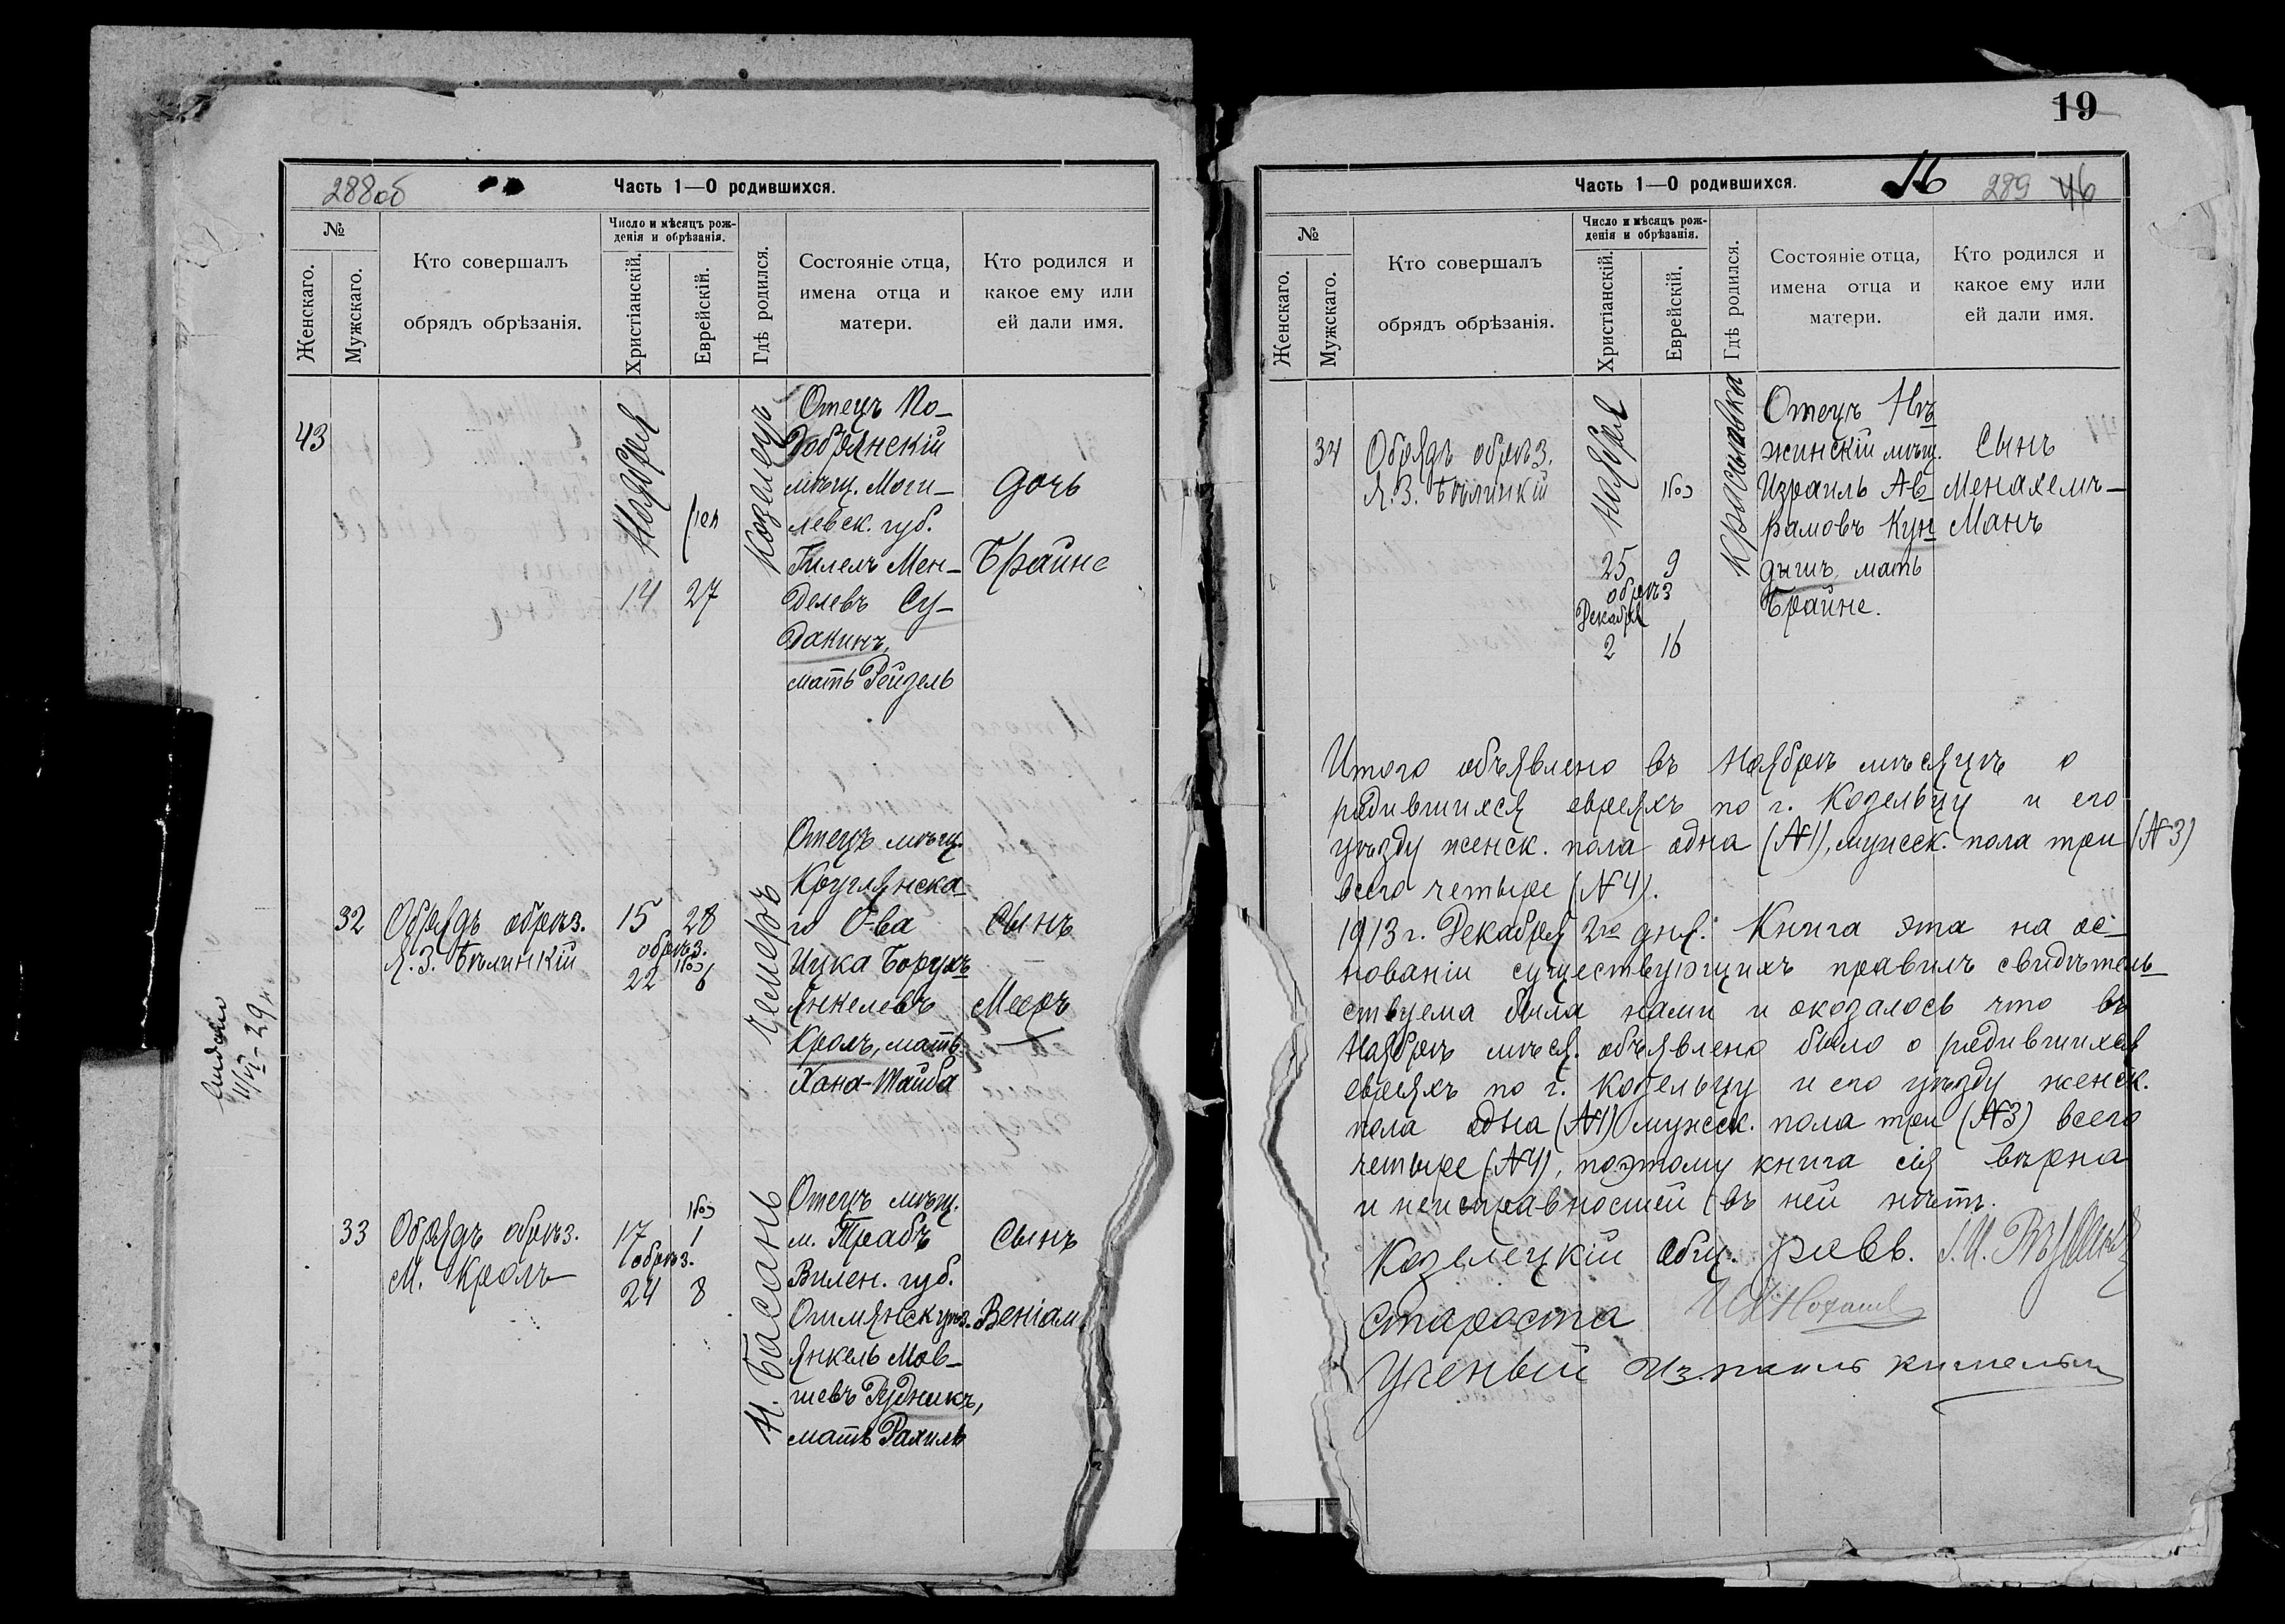 288об
Часть 1—О родившихся.
№
Женскаго.
Мужскаго.
Кто совершалъ
обрядъ обрѣзанія.
Число и мѣсяцъ рож-
денія и обрѣзанія.
Христіанскій.
Еврейскій.
Гдѣ родился.
Состояніе отца,
имена отца и
матери.
Кто родился и
какое ему или
ей дали имя.
43
Ноября
14
27
Козелецъ
Отецъ По-
добрянскій
мѣщ. Моги-
левск. губ.
Гилель Мен-
делевъ Су-
дакинъ,
мать Рейзель
дочь
Брайне
32
Обрядъ обрѣз.
Я. З. Бѣлинкій
15 28
обрѣз.
22 6
Чемеръ
Отецъ мѣщ.
Круглянска-
го О-ва
Ицка Борухъ
Янкелевъ
Кроль, мать
Хана-Тайба
Сынъ
Мееръ
33
Обрядъ обрѣз.
М. Кроль
17 1
обрѣз.
24 8
Н. Басань
Отецъ мѣщ.
м. Трабъ
Вилен. губ.
Ошмянск. уѣз.
Янкель Мов-
шевъ Рудникъ,
мать Рахиль
Сынъ
Веніам
11/VI-29
19
Часть 1—О родившихся.
16 289 46
№
Женскаго.
Мужскаго.
Кто совершалъ
обрядъ обрѣзанія.
Число и мѣсяцъ рож-
денія и обрѣзанія.
Христіанскій.
Еврейскій.
Гдѣ родился.
Состояніе отца,
имена отца и
матери.
Кто родился и
какое ему или
ей дали имя.
34
Обрядъ обрѣз.
Я. З. Бѣлинкій
Ноября
25 9
обрѣз
Декабря
2 16
Красиловка
Отецъ Нѣ
жинскій мѣщ.
Израиль Ав-
рамовъ Кун-
дышъ, мать
Брайне.
Сынъ
Менахемъ-
Манъ
Итого объявлено въ Ноябрѣ мѣсяцѣ о
родившихся евреяхъ по г. Козельцу и его
уѣзду женск. пола одна (№1), мужск. пола три (№3)
всего четыре (№4).
1913 г. Декабря 2го дня. Книга эта на ос-
нованіи существующихъ правилъ свидѣтель-
ствуема была нами и оказалось что въ
Ноябрѣ мѣся. объявлено было о родившихся
евреяхъ по г. Козельцу и его уѣзду женск.
пола одна (№1) мужск. пола три (№3) всего
четыре (№4), поэтому книга сія вѣрна
и неисправностей въ ней нѣтъ.
Козелецкій Общ. равв.
Староста
Ученый